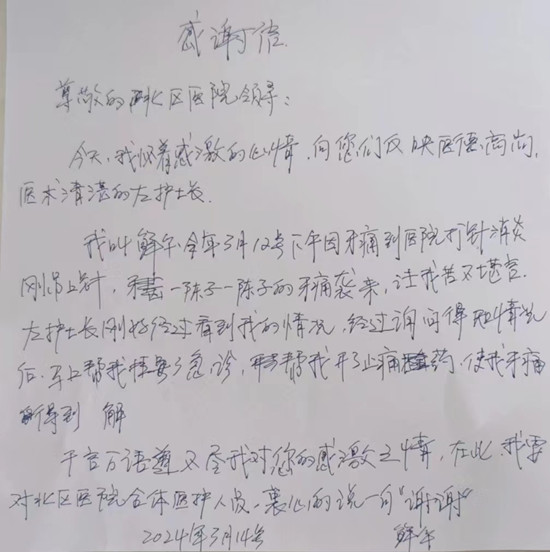 感谢信
尊敬的北区医院领导：
今天，我怀着感激的心情，向您们反映医德高尚，
医术清湛的左护士长.
我叫鲜午今年3月12号下午因牙痛到医院打针消炎
刚吊上针，一阵子一阵子的牙痛袭来，让我苦不堪言.
左护士长刚好经过看到我的情况，经过询问得知情况
后，马上帮我挂了急诊，帮我开了止痛药，使我牙痛
得到 解
千言万语道不尽我对您的感激之情，在此，我要
对北区医院全体医护人员，衷心的说一句"谢谢"
2024年3月14号 鲜午